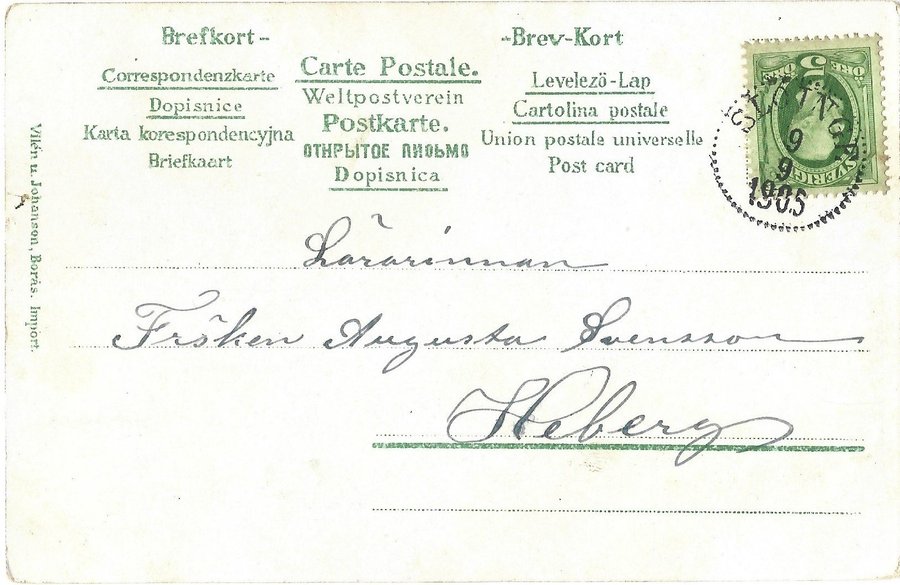 Brefkort -
-Brev-Kort
Correspondenzkarte
Dopisnice
Karta korespondencyjna
Briefkaart
Carte Postale.
Weltpostverein
Postkarte.
ОТКРЫТОЕ ПИСЬМО
Dopisnica
Levelezö-Lap
Cartolina postale
Union postale universelle
Post card
5
ÖRE
SVERIGE
SLÖINGE
9
9
1905
Lärarinnan
Fröken Augusta Svensson
Heberg
Vilén u. Johanson, Borås. Import.